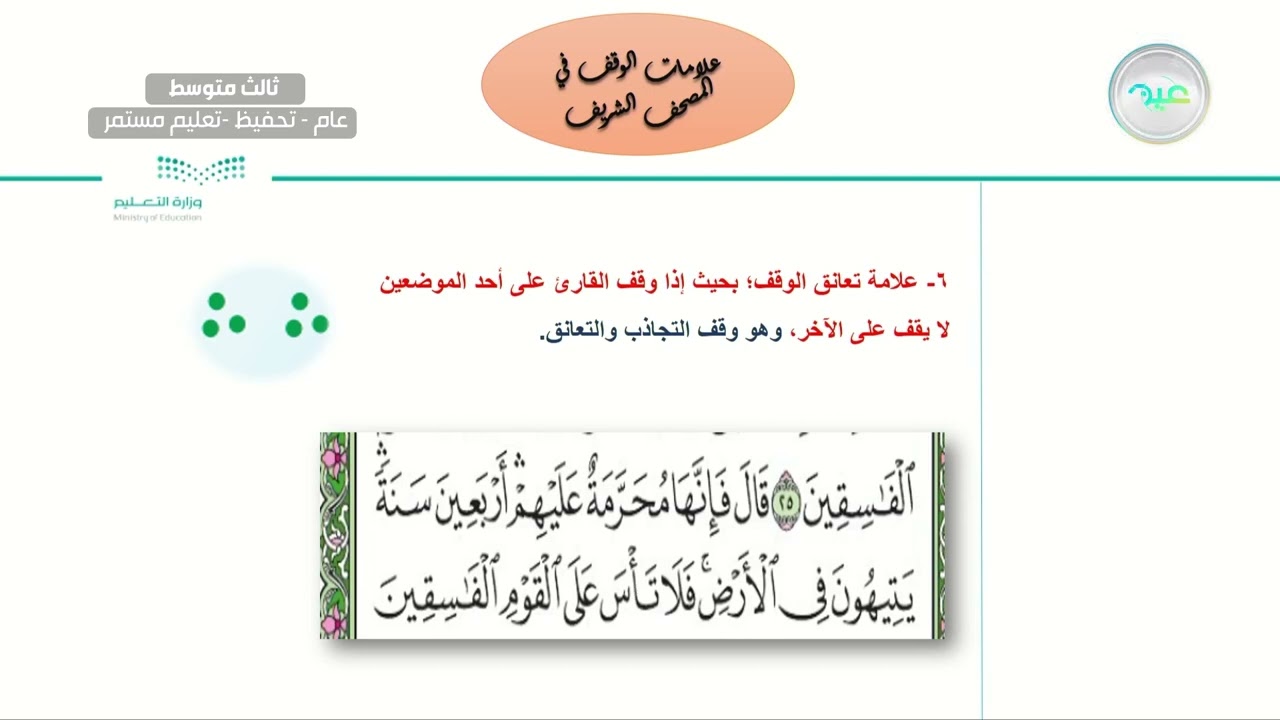 علامات الوقف في
المصحف الشريف
عين
ثالث متوسط
عام - تحفيظ -تعليم مستمر
وزارة التعـــليم
Ministry of Education
٦- علامة تعانق الوقف؛ بحيث إذا وقف القارئ على أحد الموضعين
لا يقف على الآخر، وهو وقف التجاذب والتعانق.
ٱلۡفَٰسِقِينَ ٢٥ قَالَ فَإِنَّهَا مُحَرَّمَةٌ عَلَيۡهِمۡۛ أَرۡبَعِينَ سَنَةٗۛ
يَتِيهُونَ فِي ٱلۡأَرۡضِۚ فَلَا تَأۡسَ عَلَى ٱلۡقَوۡمِ ٱلۡفَٰسِقِينَ